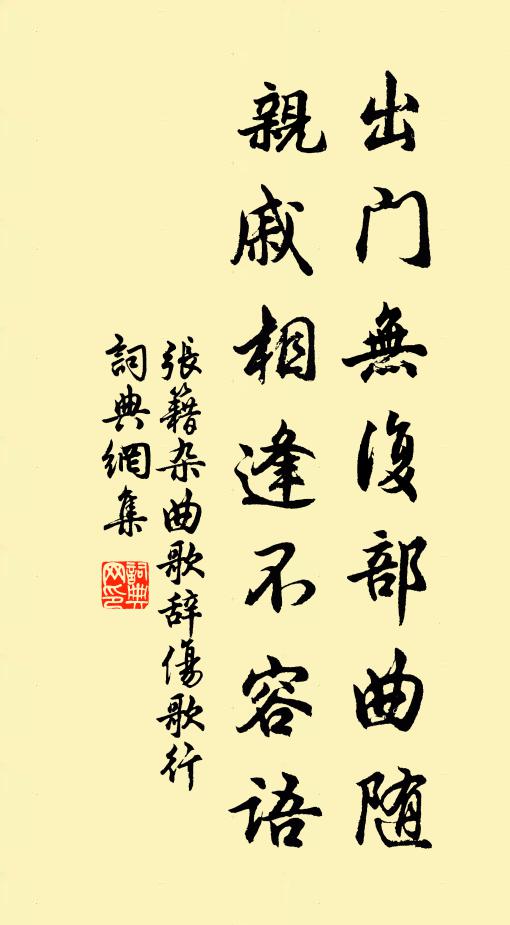 出门無復部曲随
親戚相逢不容语
張籍杂曲歌辞傷歌行
詞典網集
詞典网印